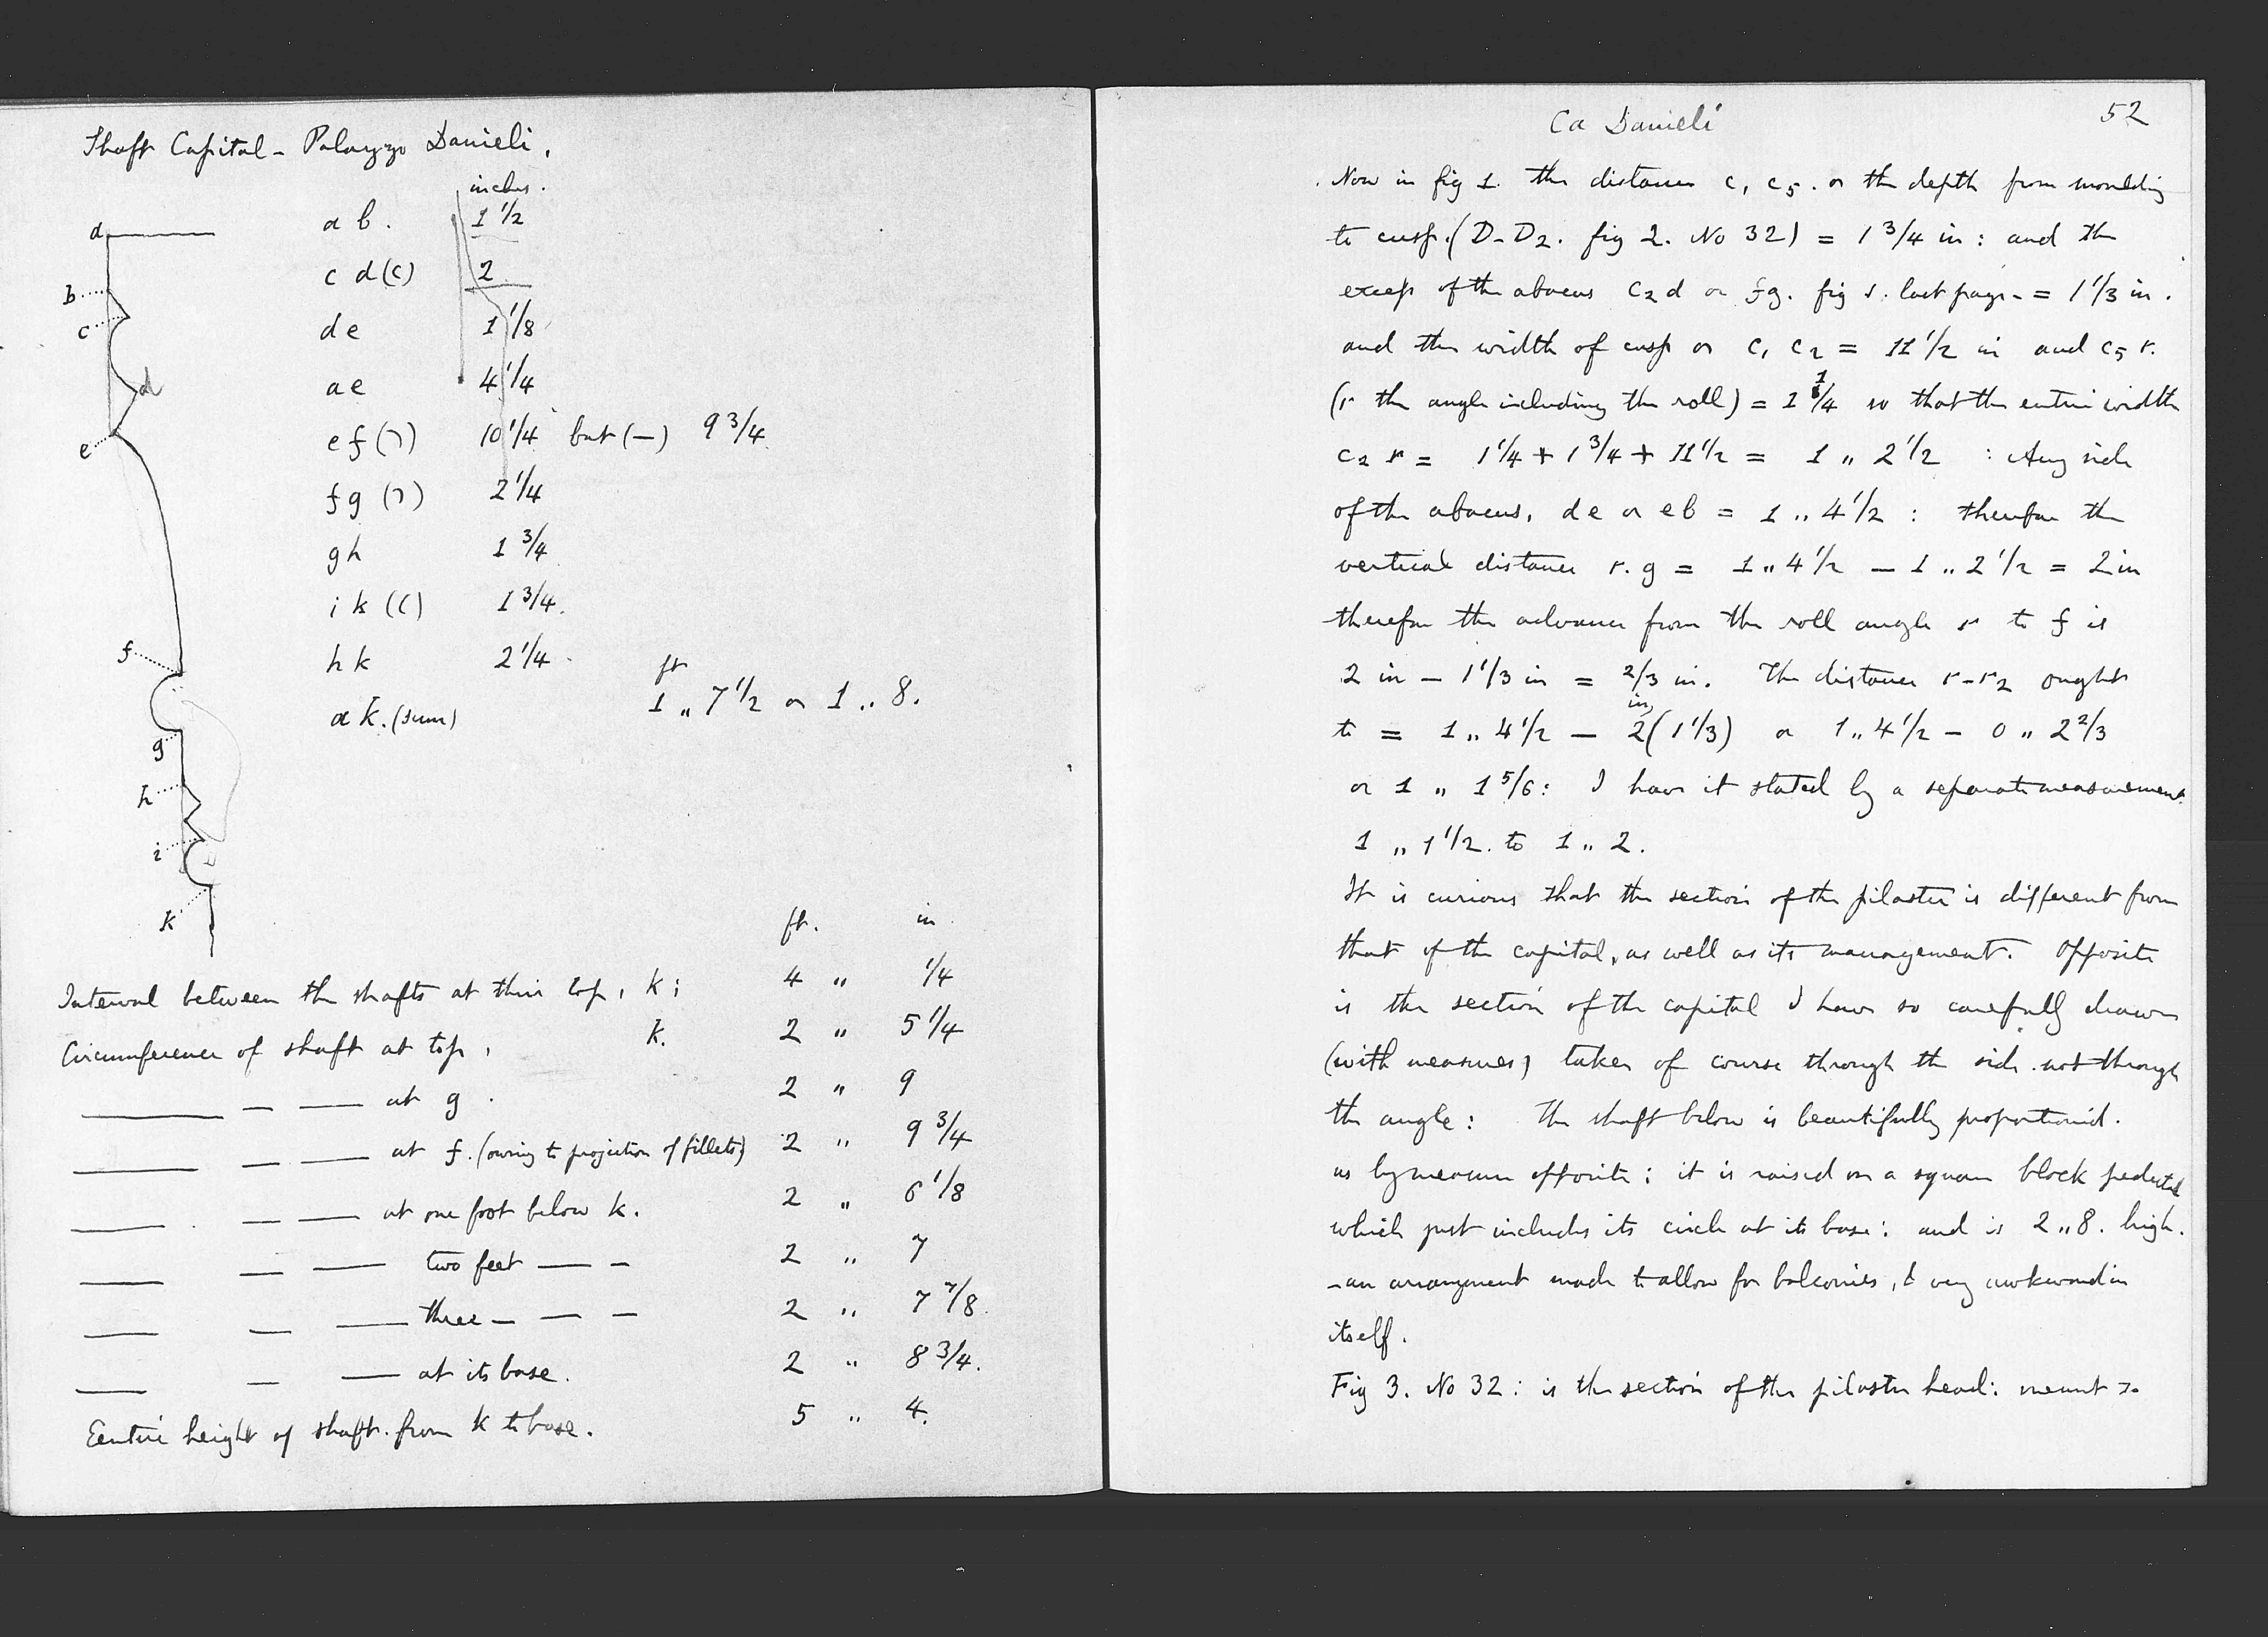 Shaft Capital - Palazzo Danieli.
inches.
a b. 1 1/2
c d (c) 2
d e 1 1/8
a e 4 1/4
e f ( ) 10 1/4 but (—) 9 3/4
f g ( ) 2 1/4
g h 1 3/4
i k (c) 1 3/4.
h k 2 1/4
a k. (sum) ft 1 „ 7 1/2 or 1 „ 8.
a
b
c
d
e
f
g
h
i
k
ft. in
Interval between the shafts at their top, k; 4 „ 1/4
Circumference of shaft at top, k. 2 „ 5 1/4
——— — —— at g. 2 „ 9
——— — —— at f. (owing to projection of fillets) 2 „ 9 3/4
——— — —— at one foot below k. 2 „ 6 1/8
——— — —— two feet — - 2 „ 7
——— — —— three - — - 2 „ 7 7/8.
——— — —— at its base. 2 „ 8 3/4.
Eentire height of shaft. from k to base. 5 „ 4.
Ca Danieli 52
Now in fig 1. the distance c, c5. or the depth from moulding
to cusp. (D-D2. fig 2. No 32) = 1 3/4 in: and the
excess of the abacus c2 d or fg. fig 1. last page - = 1 1/3 in.
and the width of cusp or c, c2 = 11 1/2 in and c5 r.
(r the angle including the roll) = 1 1/4 so that the entire width
c2 r = 1 1/4 + 1 3/4 + 11 1/2 = 1 „ 2 1/2 : Any side
of the abacus, de or eb = 1 „ 4 1/2 : therefore the
vertical distance r. g = 1 „ 4 1/2 — 1 „ 2 1/2 = 2 in
therefore the advance from the roll angle r to f is
2 in — 1 1/3 in = 2/3 in. The distance r-r2 ought
to = 1 „ 4 1/2 — 2 in, (1 1/3) or 1 „ 4 1/2 - 0 „ 2 2/3
or 1 „ 1 5/6: I have it stated by a separate measurement
1 „ 1 1/2. to 1 „ 2.
It is curious that the section of the pilaster is different from
that of the capital, as well as its management. Opposite
is the section of the capital I have so carefully drawn
(with measures) taken of course through the side. not through
the angle: The shaft below is beautifully proportioned.
as by measure opposite: it is raised on a square block pedestal
which just includes its circle at its base: and is 2 „ 8. high.
- an arrangement made to allow for balconies, & very awkward in
itself.
Fig 3. No 32: is the section of the pilaster head: meant